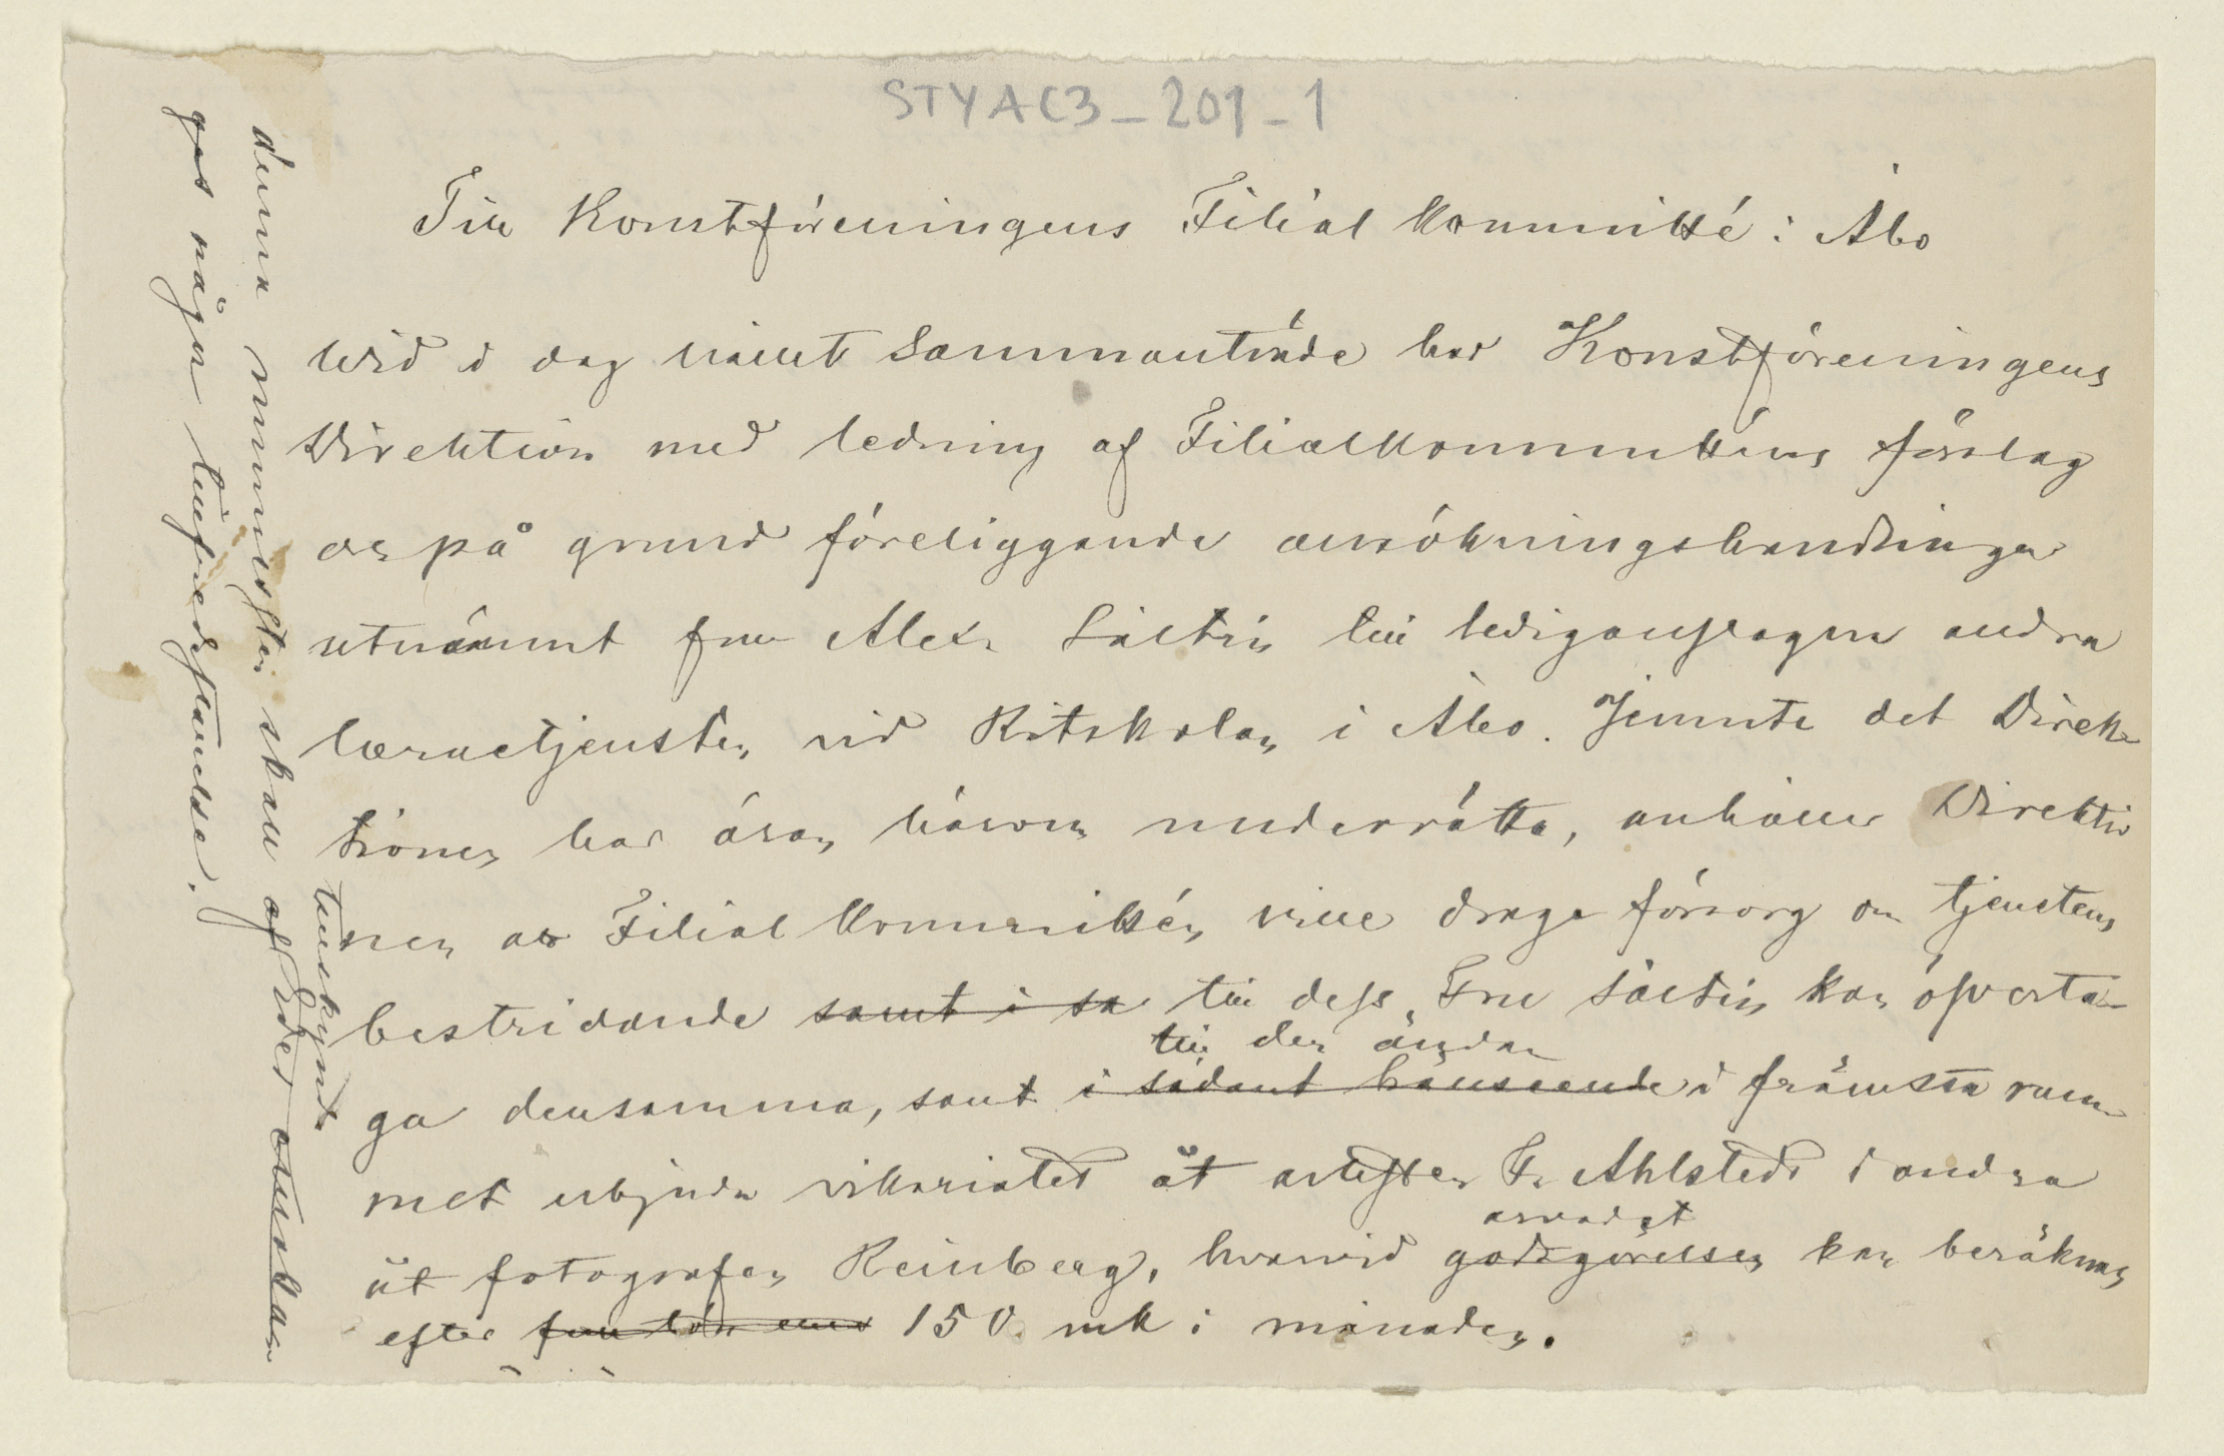 STYAC3_201_1
Till Konstföreningens Filial kommitté i Åbo
Wid i dag hållet Sammanträde har Konstföreningens
Direktion med ledning af Filialkommitténs förslag
och på grund föreliggande ansökningshandlingar
utnämnt fru Alex. Såltin till lediganslagna andra
läraretjensten vid Ritskolan i Åbo. Jemnte det Direk-
tionen har äran härom underrätta, anhåller Direktio
nen att Filial kommittén ville draga försorg om tjenstens
bestridande samt i sa till dess Fru Såltin kan öfverta-
till den ändan
ga densamma, samt i sådant hänseende i främsta rum-
met erbjuda vikariatet åt artisten Fr. Ahlstedt i andra
arvodet
åt fotografen Reinberg, hvarvid godtgörelsen kan beräknas
efter 150 mk i månaden.
denna skall af Eder
tillskynda
ges någon tillfredsställelse.